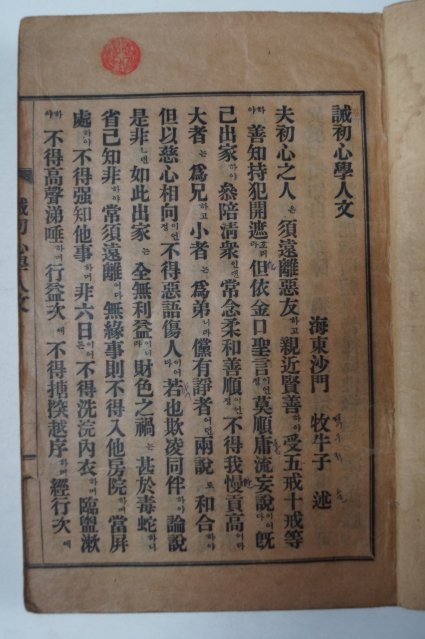 誡初心學人文
海東沙門 牧牛子 述
夫初心之人은 須遠離惡友하고 親近賢善하야 受五戒十戒等
하야 善知持犯開遮 但依金口聖言이언정 莫順庸流妄說이어다 旣
已出家하야 叅陪淸衆인댄 常念柔和善順이언정 不得我慢貢高어다
大者는 爲兄하고 小者는 爲弟니라 儻有諍者어든 兩說로 和合하야
但以慈心相向이언정 不得惡語傷人이어다 若也欺凌同伴하야 論說
是非ㄴ댄 如此出家는 全無利益이니라 財色之禍는 甚於毒蛇하니
省己知非하야 常須遠離어다 無緣事則不得入他房院하며 當屛
處하야 不得强知他事하며 非六日이어든 不得洗浣內衣하며 臨盥漱
하야 不得高聲涕唾하며 行益次에 不得搪揬越序하며 經行次에
誡初心學人文